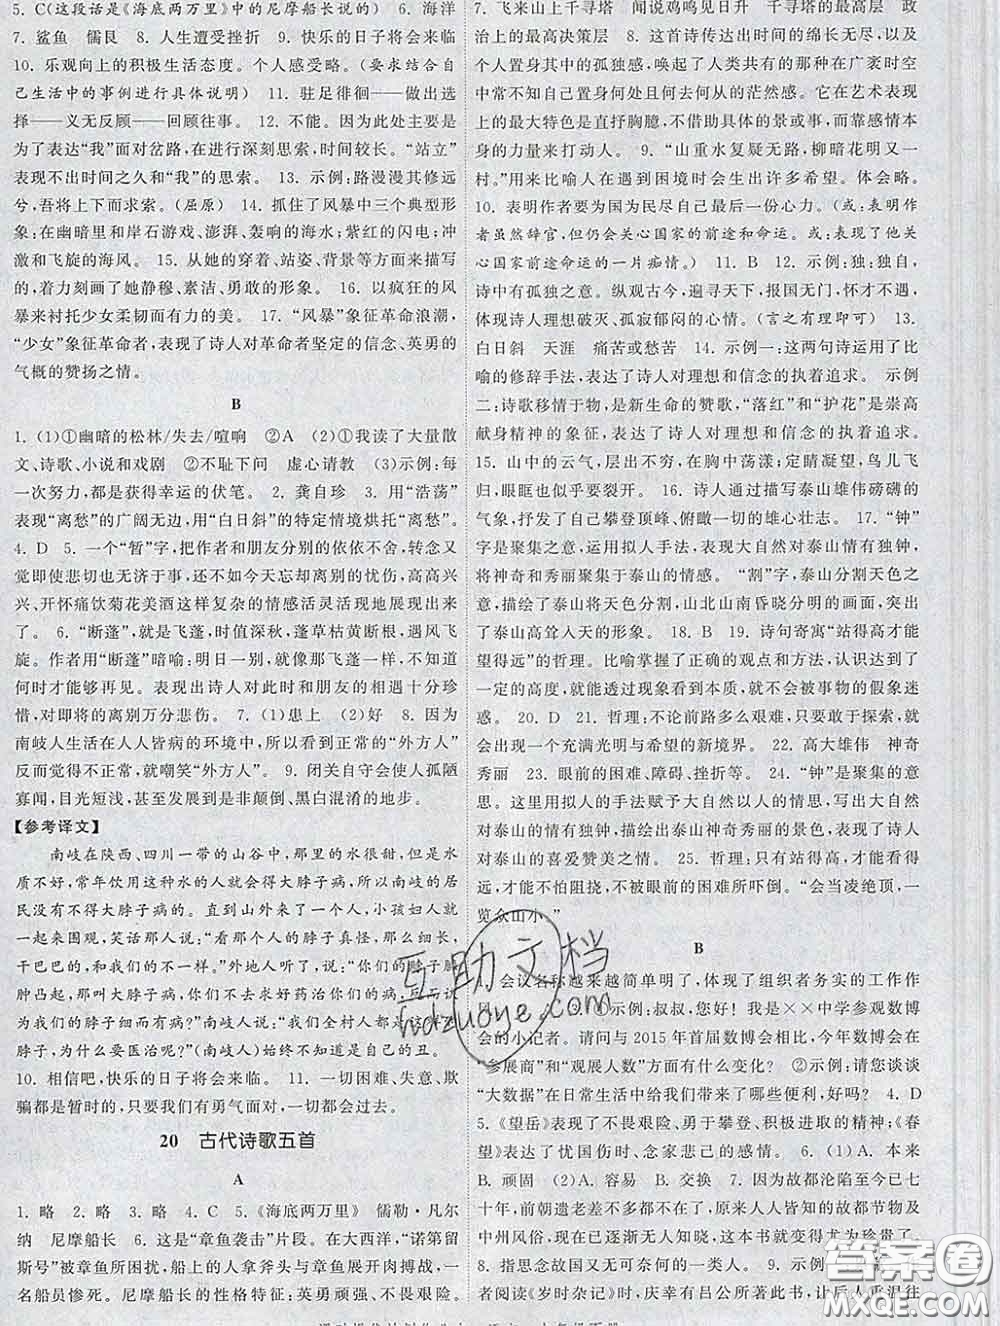 5. C(这段话是《海底两万里》中的尼摩船长说的)  6. 海洋
7. 鲨鱼  儒艮  8. 人生遭受挫折  9. 快乐的日子将会来临
10. 乐观向上的积极生活态度。个人感受略。(要求结合自
己生活中的事例进行具体说明)  11. 驻足徘徊——做出选
择——义无反顾——回顾往事。  12. 不能。因为此处主要是
为了表达“我”面对岔路,在进行深刻思索,时间较长。“站立”
表现不出时间之久和“我”的思索。  13. 示例:路漫漫其修远
兮,吾将上下而求索。(屈原)  14. 抓住了风暴中三个典型形
象:在幽暗里和岸石游戏、澎湃、轰响的海水;紫红的闪电;冲
激和飞旋的海风。  15. 从她的穿着、站姿、背景等方面描写
的,着力刻画了她静穆、素洁、勇敢的形象。  16. 以疯狂的风
暴来衬托少女柔韧而有力的美。  17. “风暴”象征革命浪潮,
“少女”象征革命者,表现了诗人对革命者坚定的信念、英勇的
气概的赞扬之情。
B
1. (1)①幽暗的松林/失去/喧响  ②A  (2)①我读了大量散
文、诗歌、小说和戏剧  ②不耻下问  虚心请教  (3)示例:每
一次努力,都是获得幸运的伏笔。  2. 龚自珍  3. 用“浩荡”
表现“离愁”的广阔无边,用“白日斜”的特定情境烘托“离愁”。
4. D  5. 一个“暂”字,把作者和朋友分别的依依不舍,转念又
觉即使悲切也无济于事,还不如抛却分别的忧伤,高高兴
兴、开怀痛饮菊花美酒这样复杂的情感活灵活现地展现出来了。
6. “断蓬”,就是飞蓬,时值深秋,蓬草枯黄断根,遇风飞
旋。作者用“断蓬”暗喻:明日一别,就像飞蓬一样,不知道
何时才能够再见。表现出诗人对此时和朋友的相遇十分珍
惜,对即将的离别万分悲伤。  7. (1)患上  (2)好  8. 因为
南岐人生活在人人皆病的环境中,所以看到正常的“外方人”
反而觉得不正常,就嘲笑“外方人”。  9. 闭关自守会使人孤陋
寡闻,目光短浅,甚至发展到了是非颠倒、黑白混淆的地步。
【参考译文】
南岐在陕西、四川一带的山谷中,那里的水很甜,但是水
质不好,常年饮用这种水的人就会得大脖子病,所以南岐的居
民没有不得大脖子病的。直到山外来了一个人,小孩妇人就
一起来围观,笑话那人说:“看那个人的脖子真怪,那么细长,
干巴巴的和我们的不一样。”外地人听了,说:“你们的脖子臃
肿凸起,那是得了大脖子病,你们不去求好药治你们的病,
为我们的脖子细而有病?”南岐人说:“我们全村人都是这样的
脖子,为什么要医治呢?”(南岐人)始终不知道是自己的丑。
10. 相信吧,快乐的日子将会来临。  11. 一切困难、失意、欺
骗都是暂时的,只要我们有勇气面对,一切都会过去。
20  古代诗歌五首
A
1. 略  2. 略  3. 略  4. C  5. 《海底两万里》  儒勒·凡尔
纳  尼摩船长  6. 这是“章鱼袭击”片段。在大西洋,“诺第留
斯号”被章鱼所困扰,船上的人拿斧头与章鱼展开肉搏战,一
名船员惨死。尼摩船长的性格特征:英勇顽强、不畏艰险。
7. 飞来山上千寻塔  闻说鸡鸣见日升  千寻塔的最高层  政
治上的最高决策层  8. 这首诗传达出时间的绵长无限,以及
个人置身其中的孤独感,唤起了人类共有的那种在广袤时空
中不知自己置身何处何去何从的茫然感。它在艺术表现
上的最大特色是直抒胸臆,不借助具体的景或事,而靠感情本
身的力量来打动人。  9. “山重水复疑无路,柳暗花明又一
村。”用来比喻人在遇到困境时会生出许多希望。体会略。
10. 表明作者要为国为民尽自己最后一份心力。(或:表明作
者虽然辞官,但仍会关心国家的前途和命运,表达了诗人关
心国家前途命运的一片痴情。)  11. B  12. 示例:独:独自,
诗中有孤独之意。纵观古今,遍寻天下,报国无门,怀才不遇,
体现诗人理想破灭、孤寂郁闷的心情。(言之有理即可)  13.
白日斜  天涯  痛苦或愁苦  14. 示例一:这两句诗运用了比
喻的修辞手法,表达了诗人对理想和信念的执着追求。  示例
二:诗歌移情于物,是新生命的赞歌,“落红”和“护花”是崇高
献身精神的象征,表达了诗人对理想和信念的执着追求。
15. 山中的云气,层出不穷,在胸中荡漾;定睛凝望,鸟儿飞
归,眼眶也似乎要裂开。  16. 诗人通过描写泰山雄伟磅礴的
气象,抒发了自己勇攀顶峰、俯瞰一切的雄心壮志。  17. “钟”
字是聚集之意,运用拟人手法,表现大自然对泰山情有独钟,
将神奇和秀丽聚集于泰山的情感。“割”字,泰山分割天色之
意,描绘了泰山将天色分割,山北山南昏晓分明的画面,突出
了泰山高耸入天的形象。  18. B  19. 诗句寄寓“站得高才能
望得远”的哲理。比喻掌握了正确的观点和方法,认识达到了
一定的高度,就能透过现象看到本质,就不会被事物的假象迷
惑。  20. D  21. 哲理:不论前路多么艰难,只要敢于探索,就
会出现一个充满光明与希望的新境界。  22. 高大雄伟  神奇
秀丽  23. 眼前的困难、障碍、挫折等。  24. “钟”是聚集的意
思,这里使用拟人的手法赋予大自然以人的情感,写出了大自
然对泰山的情有独钟,描绘出泰山神奇秀丽的景色,表达了对
泰山的喜爱赞美之情。  25. 哲理:只有站得高,才能看得远,
才能不怕阻挠,不被眼前的困难所吓倒。“会当凌绝顶,一
览众山小。”
B
会议名称越来越简单明了,体现了组织者务实的工作作
风。  ①示例:叔叔,您好!我是××中学参观数博
会的小记者。请问与2015年首届数博会相比,今年数博会在
“参展商”和“观展人数”方面有什么变化?  ②示例:您能谈谈
“大数据”在日常生活中给我们带来了哪些便利,好吗?  4. D
5. 《望岳》表现了不畏艰险、勇于攀登、积极向上的精神。《春
望》表达了忧国伤时、念家悲己的感情。  6. (1)A. 本来
B. 顽固  (2)A. 容易  B. 交换  7. 因为故都沦陷至今已七
十年,前朝遗老差不多都不在了,原来知道故都繁华风物以及
中州风俗,现在已逐渐无人知晓,因此这本书就显得尤为珍贵。
8. 指思念故国又无可奈何的一类人。  9. 示例
阅读《岁时杂记》,庆幸有吕公所著此书,让后人
互助文档
hdzuoye.com
答案圈
MXQE.COM